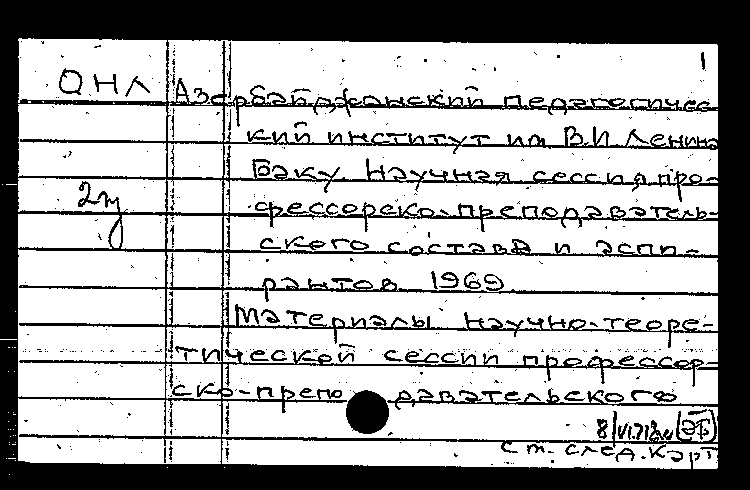 1
ОНЛ Азербайджанский педагогичес
кий институт им В.И Ленина
Баку. Научная сессия про-
фессорско-преподаватель-
ского состава и аспи-
рантов 1969
Материалы научно-теоре-
тической сессии профессор-
ско-препо давательского
ст. след. карт